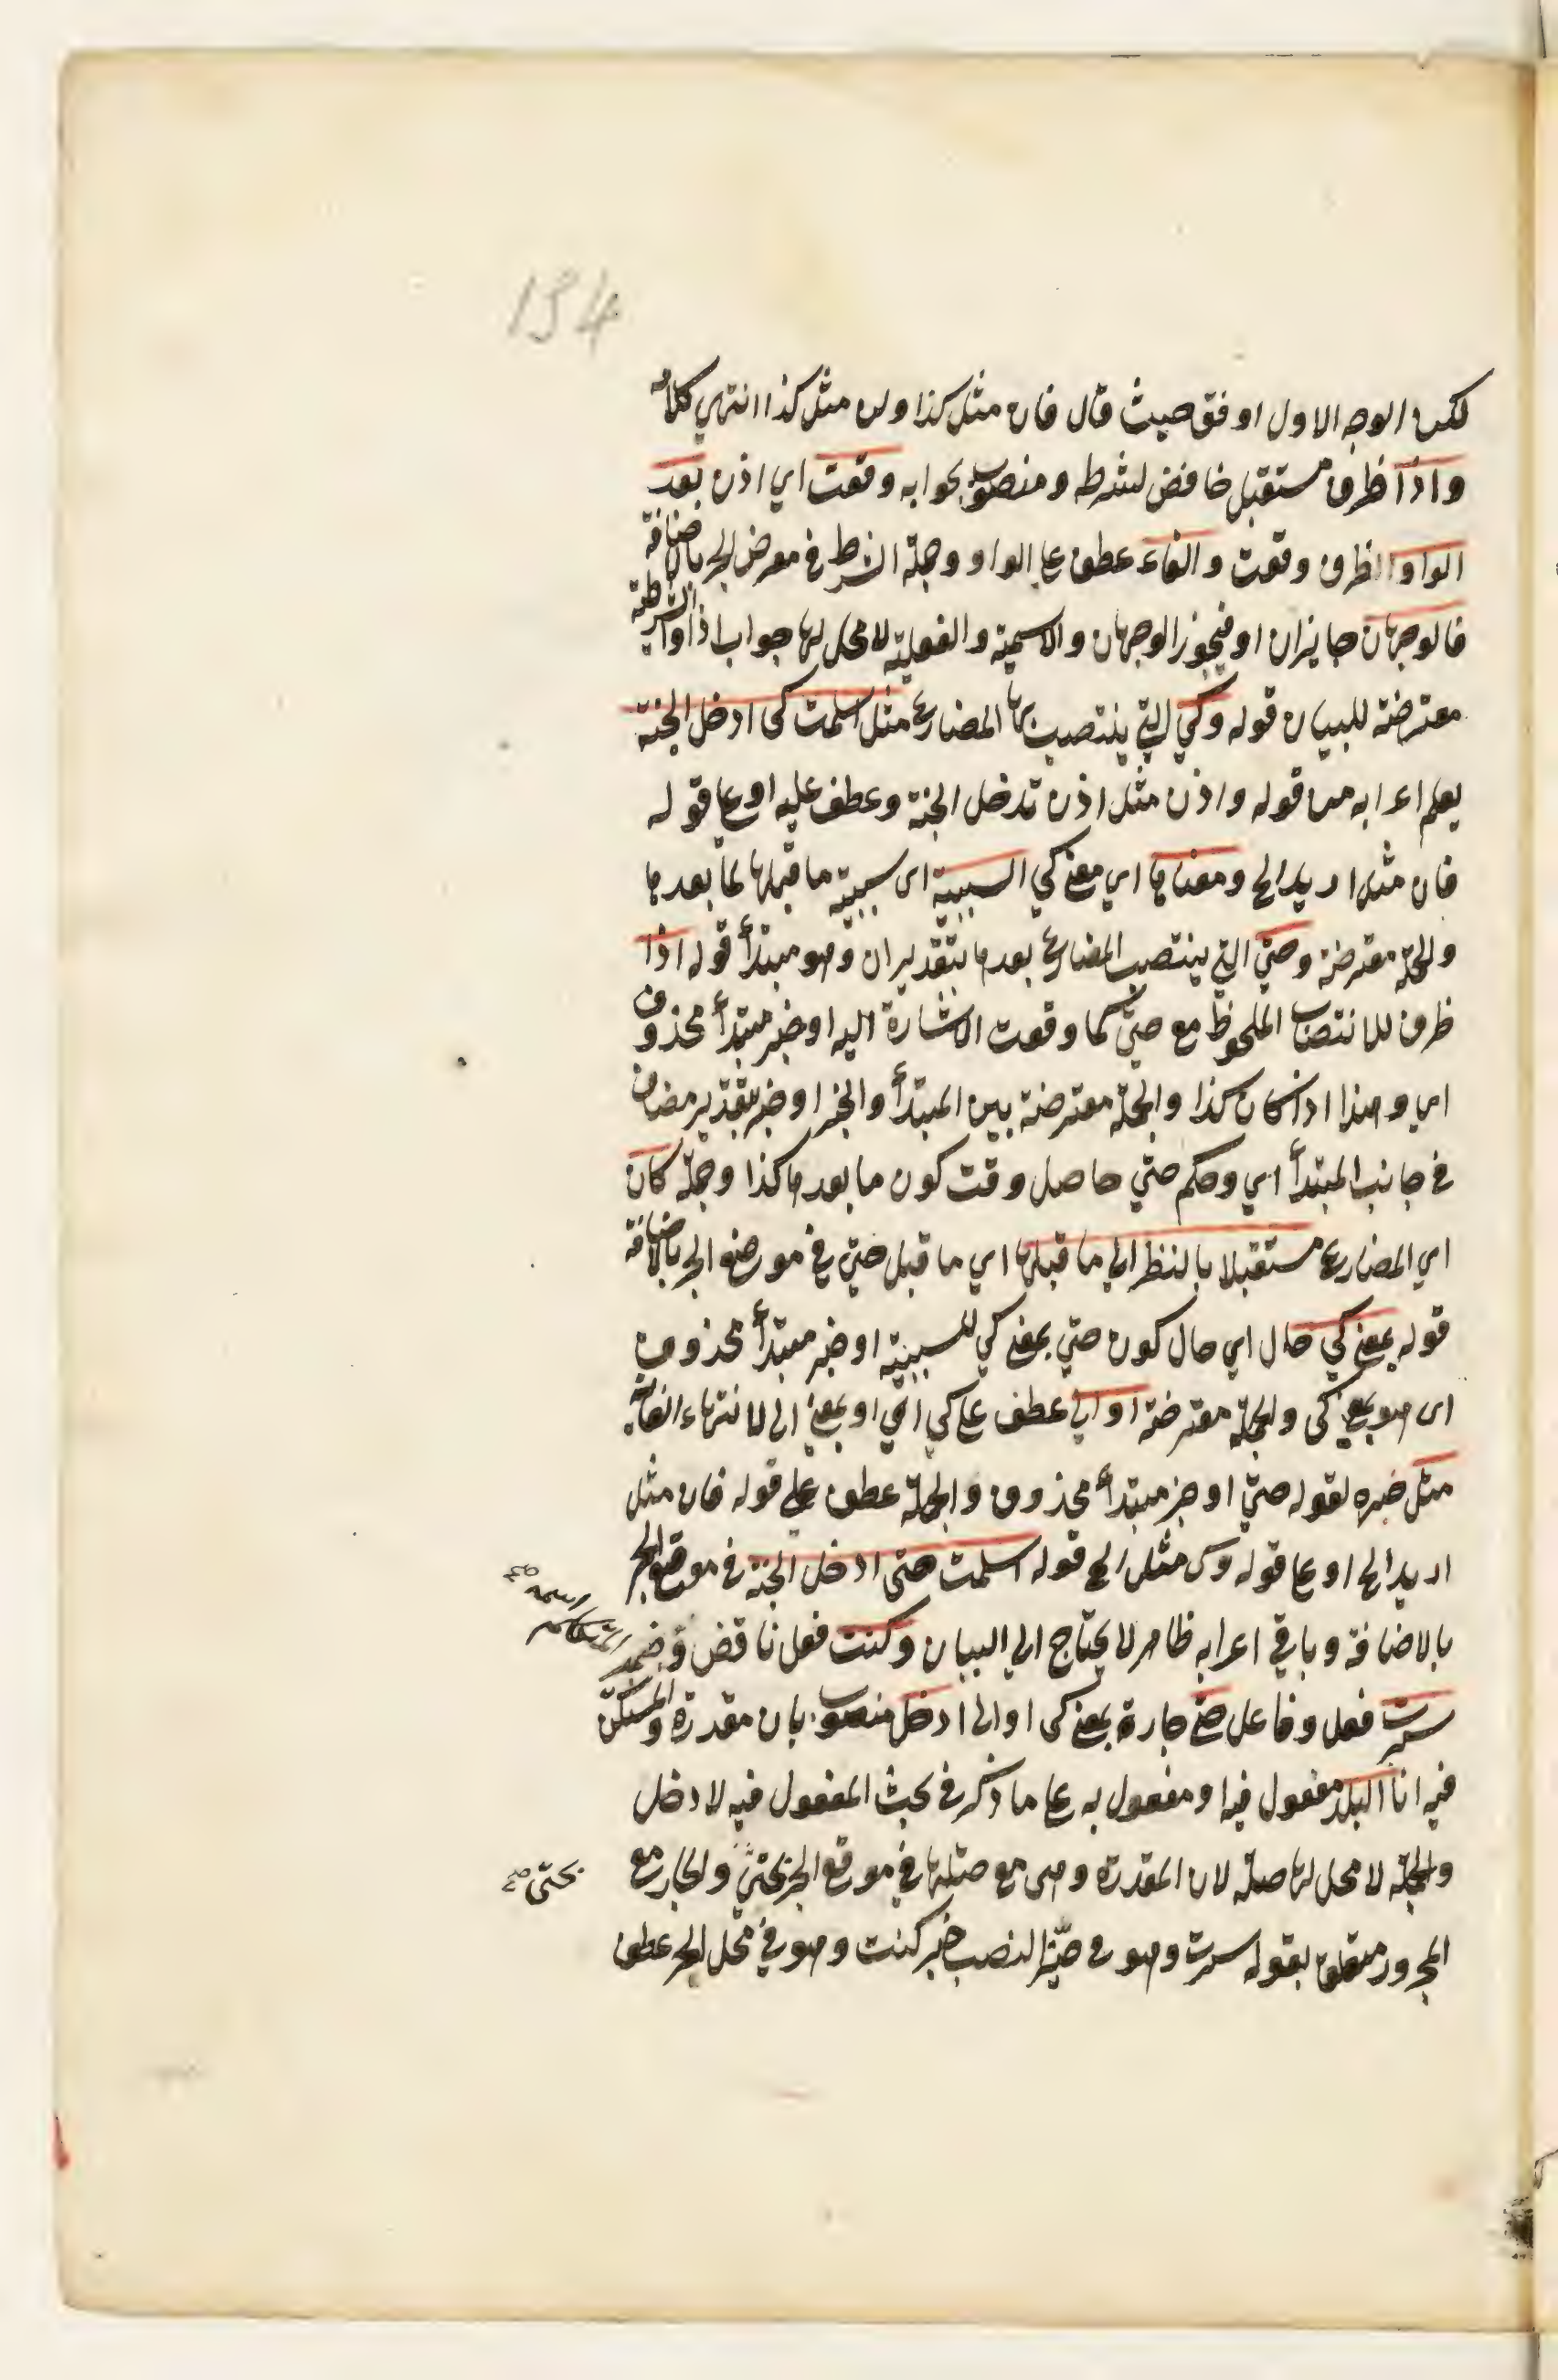 134
لكن الوجه الاول اوفق حيث قال فان مثل كذا ولن مثل كذا انتهي كلامه
واذا ظرف مستقبل خافض لشرطه ومنصوب بجوابه وقعت اي اذن بعد
الواو الظرف وقعت والفاء عطف على الواو وجملة الشرط في معرض الجر باضافة
فالوجهان جايزان او فيجوز الوجهان والاسمية والفعلية لا محل لها جواب اذا والشرطية
معترضة للبيان قوله وكي التي ينتصب بها المضارع مثل اسلمت كى ادخل الجنة
يعلم اعرابه من قوله واذن مثل اذن تدخل الجنة وعطف عليه او على قوله
فان مثل اريد الخ ومعناها اي معنى كي السببية اى سببية ما قبلها لما بعدها
والجملة معترضة وحتى التي ينتصب المضارع بعدها بتقدير ان وهو مبتدأ قوله اذا
ظرف للانتصاب الملحوظ مع حتى كما وقعت الاشارة اليه او خبر مبتدأ محذوف
اي وهذا اذا كان كذا والجملة معترضة بين المبتدأ والخبر او خبر بتقدير مضاف
في جانب المبتدأ اي وحكم حتى حاصل وقت كون ما بعدها كذا وجملة كان
اي المضارع مستقبلا بالنظر الى ما قبلها اي ما قبل حتى في موضع الجر بالاضافة
قوله بمعنى كي حال اي حال كون حتى بمعنى كي للسببية او خبر مبتدأ محذوف
اى هو بمعنى كى والجملة معترضة او الى عطف على كي اي او بمعنى الى لانتهاء الغاية
مثل خبره لقوله حتى او خبر مبتدأ محذوف والجملة عطف على قوله فان مثل
اريد الخ او على قوله وكى مثل الخ قوله اسلمت حتى ادخل الجنة في موضع الجر
بالاضافة وباقي اعرابه ظاهر لا يحتاج الى البيان وكنت فعل ناقص وضمير
المتكلم اسمه صح
سرت فعل وفاعل حتى جارة بمعنى كى او الى ادخل منصوب بان مقدرة والمستكن
فيه انا البلد مفعول فيه او مفعول به على ما ذكر في بحث المفعول فيه لادخل
والجملة لا محل لها صلة لان المقدرة وهى مع صلتها في موقع الجر بحتى والجار مع
بحتى صح
المجرور متعلق بقوله سرت وهو في حيز النصب خبر كنت وهو في محل الجر عطف